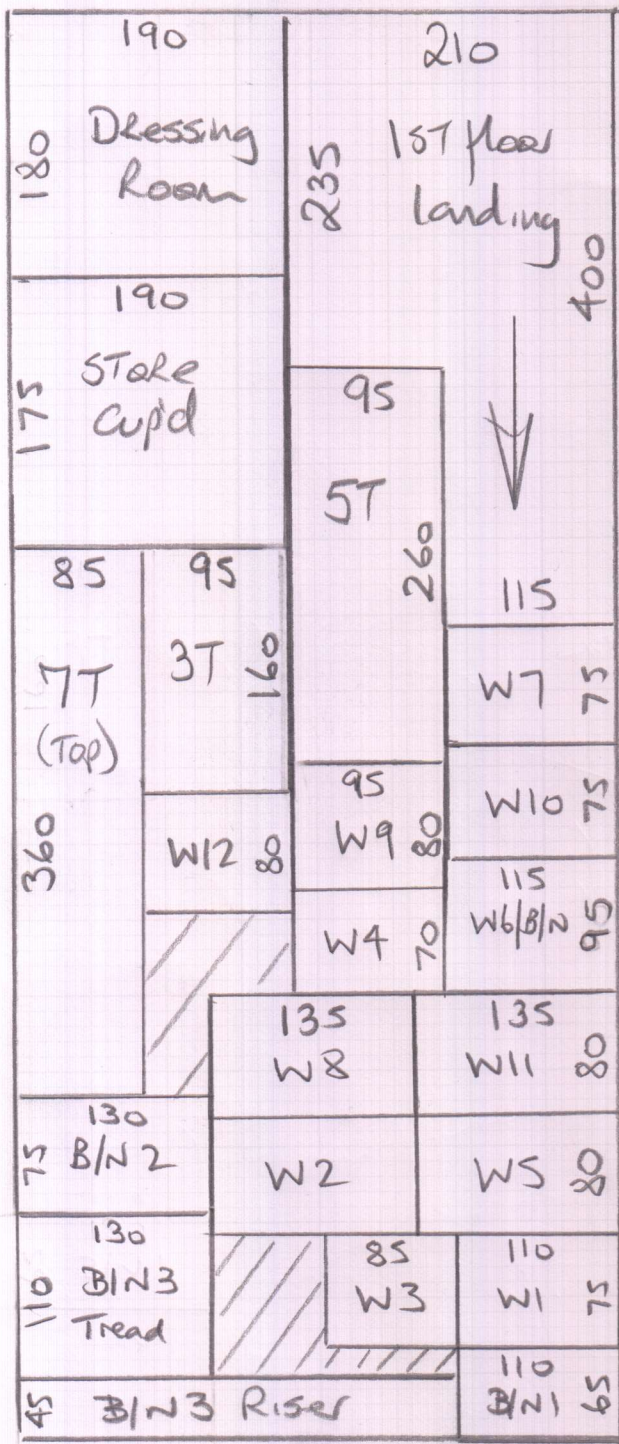 190
180
Dressing
Room
210
235
1ST floor
landing
400
190
175
STORE
Cup'd
95
5T
260
115
85
7T
(Top)
360
95
3T
160
W7 75
W10 75
W12 80
95
W9 80
115
W6/B/N 95
W4 70
135
W8
135
W11 80
130
75 B/N 2
W2
W5 80
130
110 B/N3
Tread
85
W3
110
W1 75
45 B/N3 Riser
110
B/N1 65